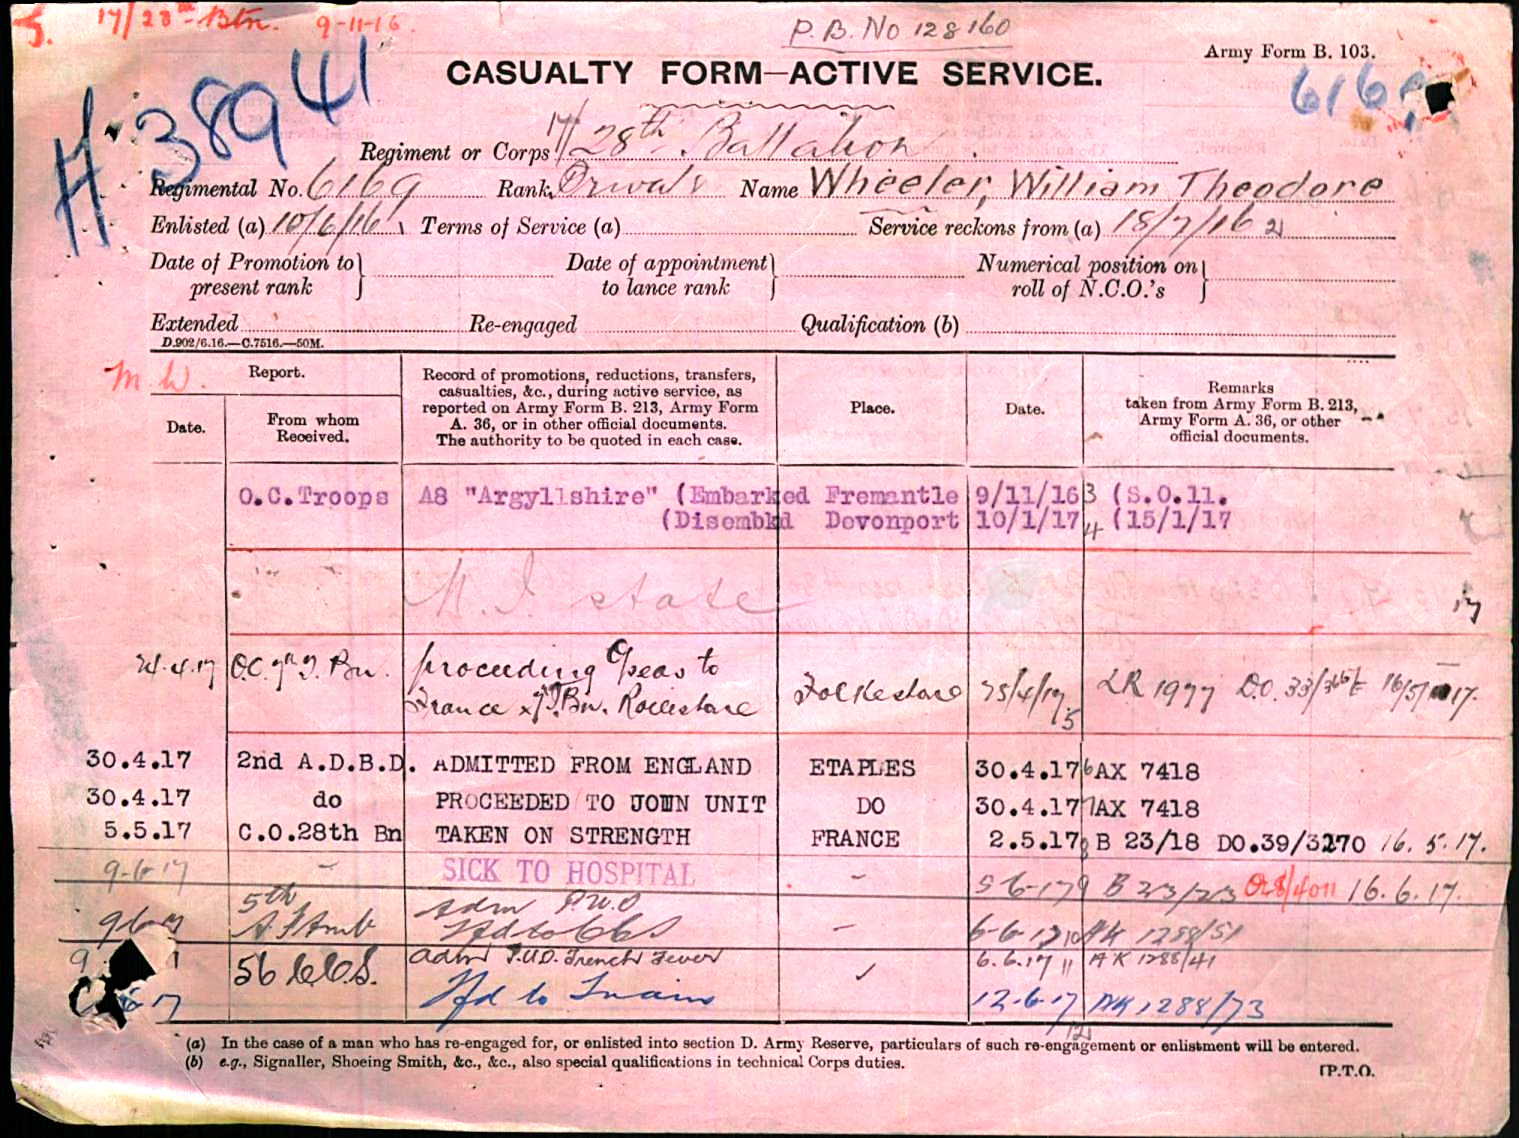 17/28th Btn. 9-11-16.
P.B. No 128160
Army Form B. 103.
H 38941
CASUALTY FORM—ACTIVE SERVICE.
6169
Regiment or Corps 17/28th Battalion
Regimental No. 6169 Rank Private Name Wheeler, William Theodore
Enlisted (a) 10/6/16 Terms of Service (a) Service reckons from (a) 18/7/16 2
Date of Promotion to present rank Date of appointment to lance rank Numerical position on roll of N.C.O.'s
Extended Re-engaged Qualification (b)
D.902/6.16.—C.7516.—50M.
M.W.
Report.
Date.
From whom Received.
Record of promotions, reductions, transfers,
casualties, &c., during active service, as
reported on Army Form B. 213, Army Form
A. 36, or in other official documents.
The authority to be quoted in each case.
Place.
Date.
Remarks
taken from Army Form B. 213,
Army Form A. 36, or other
official documents.
O.C.Troops A8 "Argyllshire" (Embarked Fremantle 9/11/16 3 (S.O.11.
(Disembkd Devonport 10/1/17 4 (15/1/17
N.I. state
24.4.17 O.C. 7th T. Bn. proceeding Oseas to
France x 7 T.Bn. Rollestone Folkestone 25/4/17 5 LR 1977 D.O. 33/ 16/5/17.
30.4.17 2nd A.D.B.D. ADMITTED FROM ENGLAND ETAPLES 30.4.17 6 AX 7418
30.4.17 do PROCEEDED TO JOIN UNIT DO 30.4.17 7 AX 7418
5.5.17 C.O.28th Bn TAKEN ON STRENGTH FRANCE 2.5.17 8 B 23/18 DO.39/3270 16.5.17.
9-6-17 - SICK TO HOSPITAL - 5-6-17 9 B 23/23 16.6.17.
9-6-17 5th A.F.Amb Adm P.U.O
Tfd to CCS - 6-6-17 10 AK 1288/51
9 56 C.C.S. adm P.U.O. Trench Fever 6.6.17 11 AK 1288/41
6-17 Tfd to Train 12-6-17 AK 1288/73
12
(a) In the case of a man who has re-engaged for, or enlisted into section D. Army Reserve, particulars of such re-engagement or enlistment will be entered.
(b) e.g., Signaller, Shoeing Smith, &c., &c., also special qualifications in technical Corps duties.
[P.T.O.